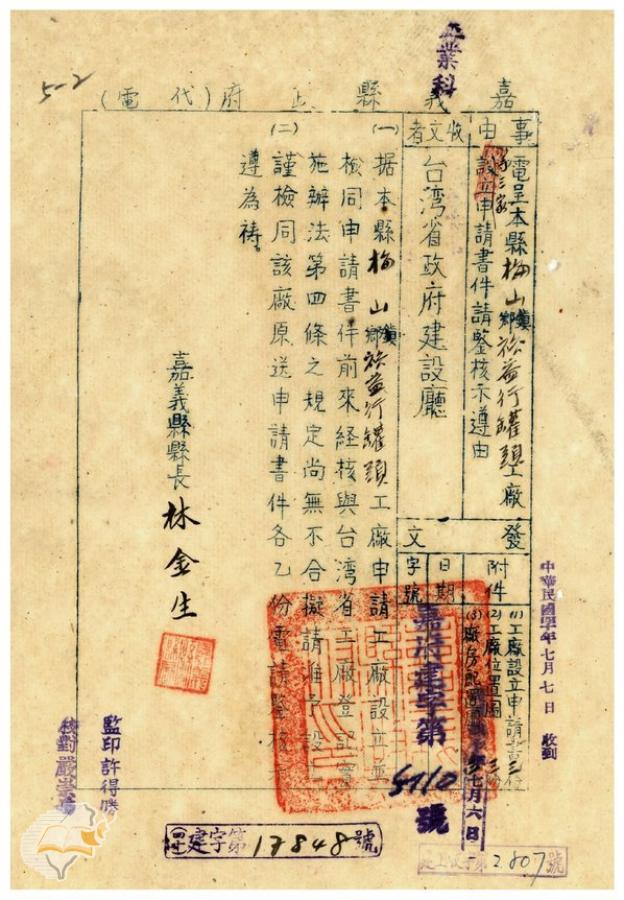 5-2
工業科
嘉義縣政府(代電)
事由
電呈本縣梅山鄉鎮裕益行罐頭工廠
等三家
設立申請書件請鑒核示遵由
收文者
台湾省政府建設廳
發文
附件
(1)工廠設立申請書三份
(2)工廠位置圖
(3)廠房配置圖 三份
日期
年七月六日
字號
嘉府建字第5710號
(一)据本縣梅山鄉鎮裕益行罐頭工廠申請工廠設立並
檢同申請書件前來経核與台湾省工廠登記實
施辦法第四條之規定尚無不合擬請准予設立
(二)謹檢同該廠原送申請書件各乙份電請鑒核
遵為禱
嘉義縣縣長 林金生
監印 許得勝
校對 嚴崇
中華民國 年七月七日 收到
建字第17848號
建工收字第2807號